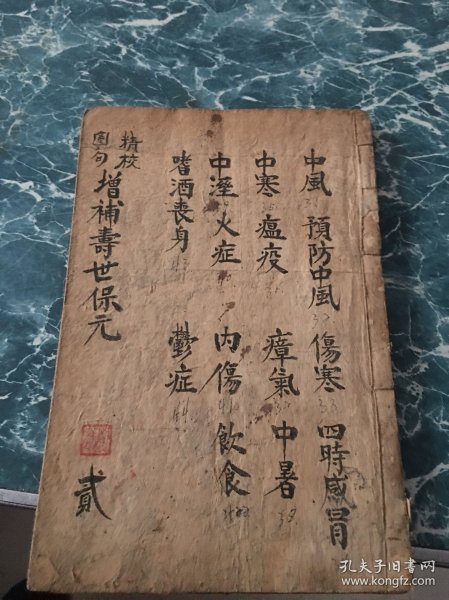 中風 預防中風 傷寒 四時感冒
中寒 瘟疫 瘴氣 中暑
中溼 火症 內傷 飲食
嗜酒喪身 鬱症
精校
圈句
增補壽世保元
貳
孔夫子旧书网
www.kongfz.com